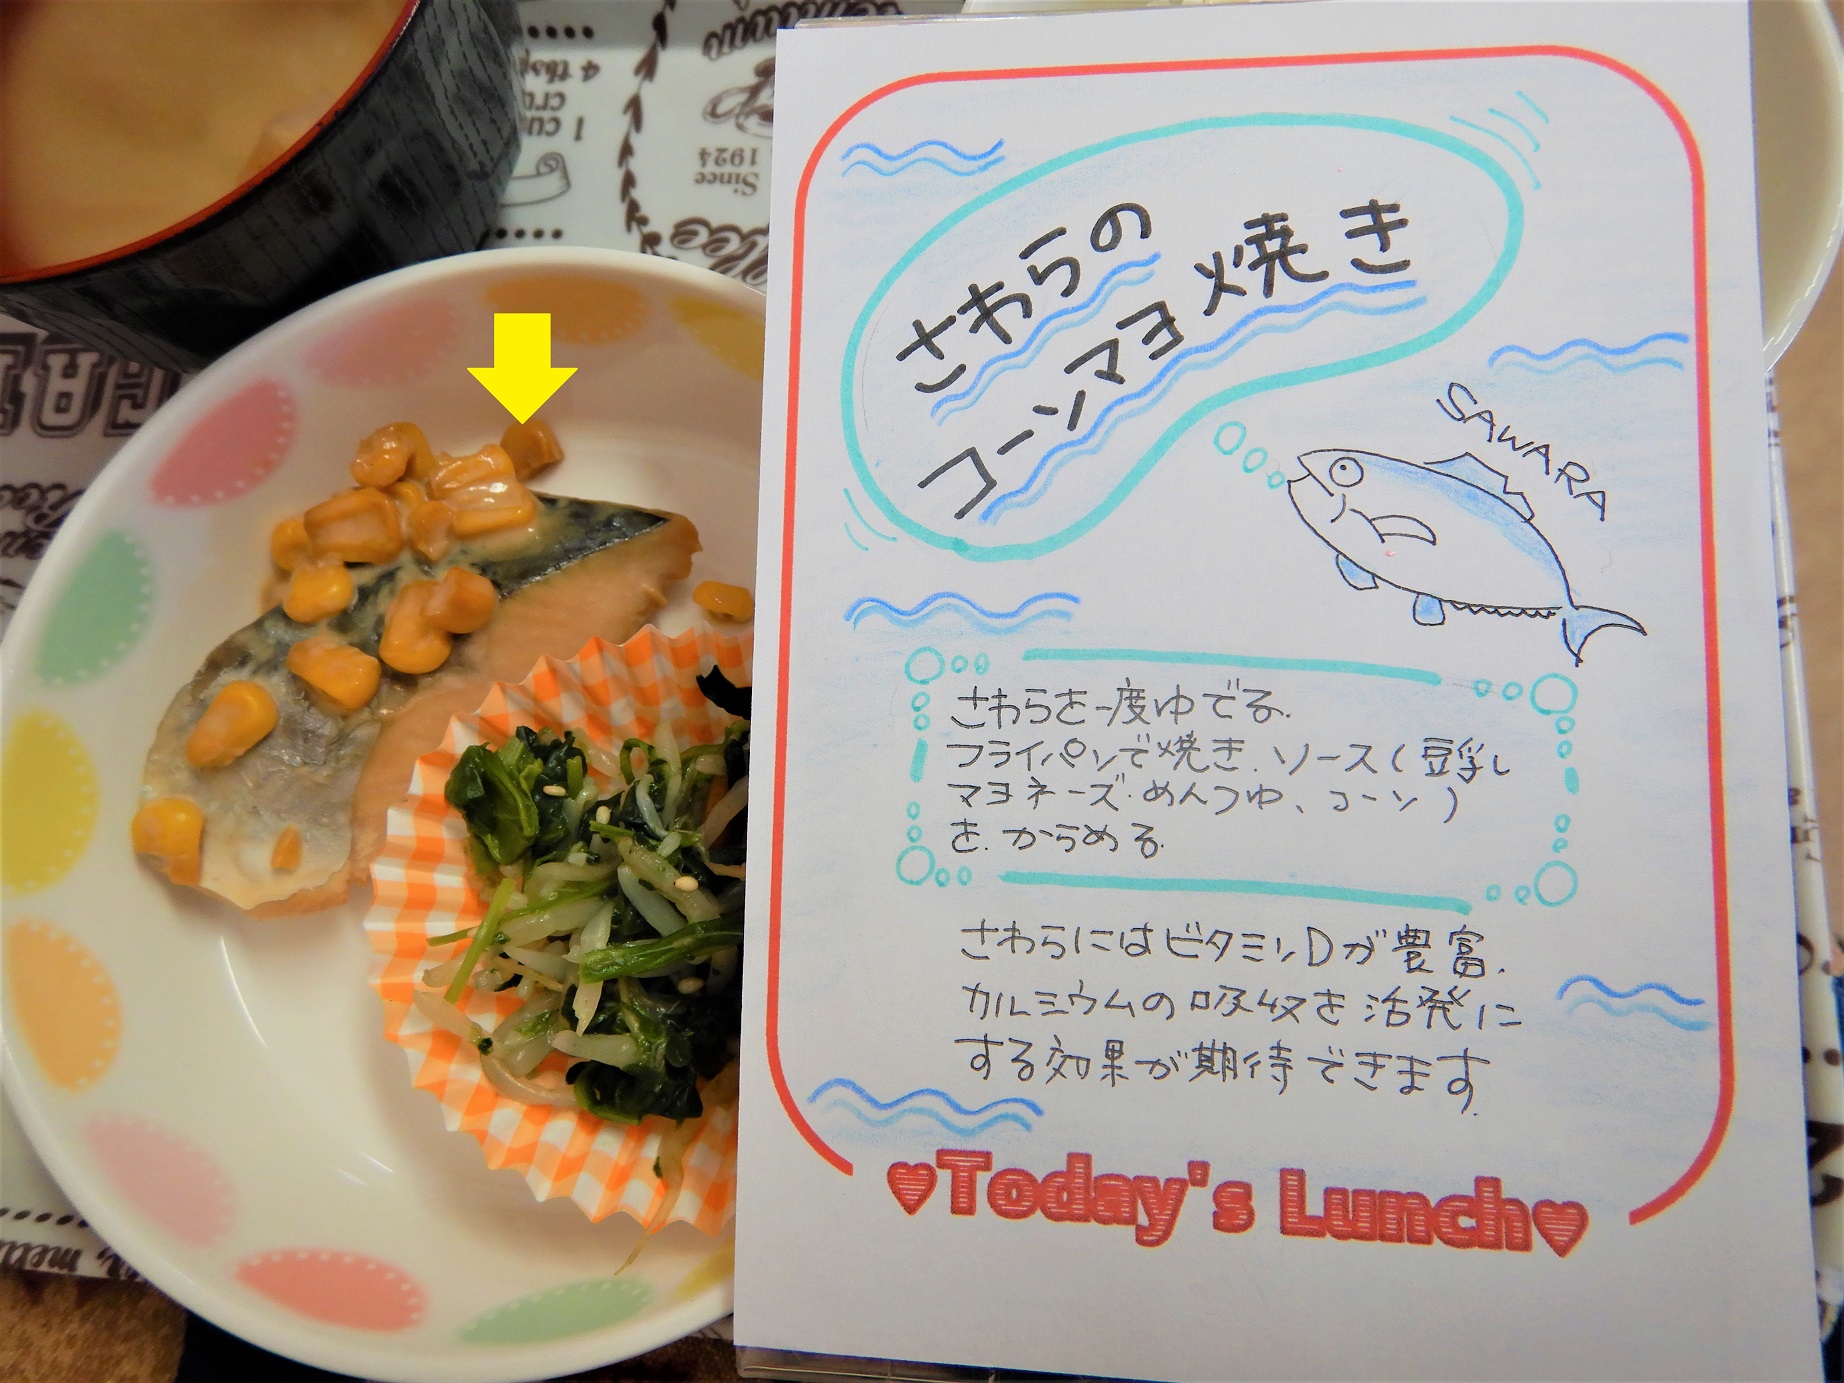 さわらの
コーンマヨ焼き
SAWARA
さわらを一度ゆでる.
フライパンで焼き.ソース(豆乳
マヨネーズ.めんつゆ、コーン)
を.からめる.
さわらにはビタミンDが豊富.
カルシウムの吸収を活発に
する効果が期待できます.
♥Today's Lunch♥
4 tbsp
1 cu
Since
1924